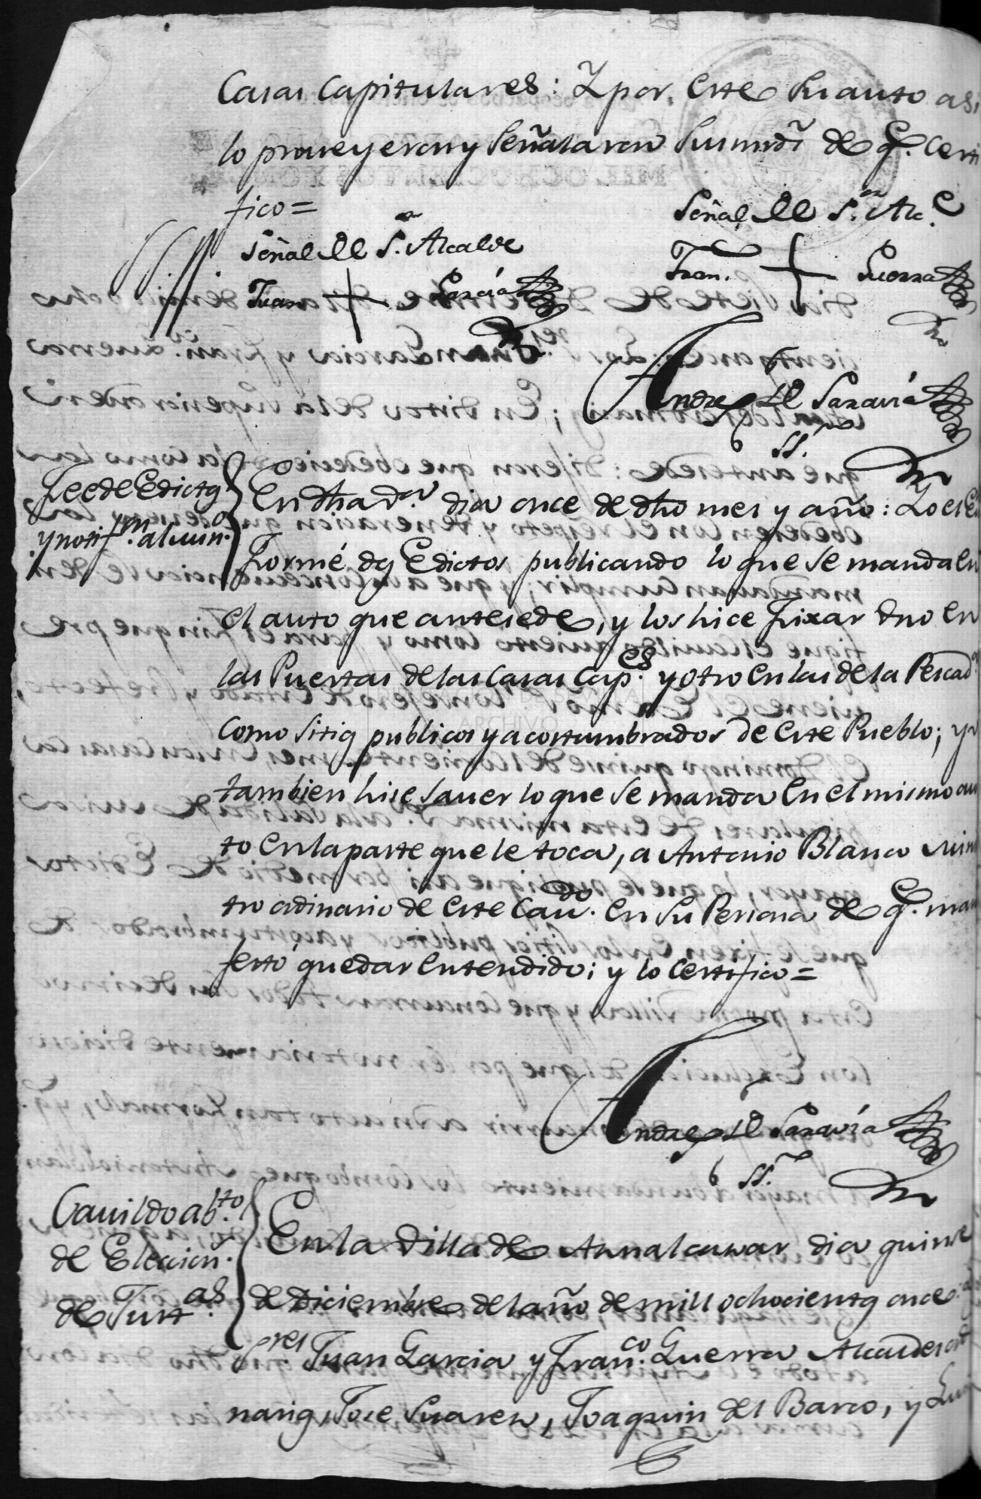 Casas Capitulares: Y por este su auto asi
lo proveyeron y señalaron sus mrds de q.e certi
fico=
Señal del S.or Alcalde
Juan + García
Señal del S.or Alc.e
Fran.co + Guerra
Andres de Saravía
SS.no
Fee de Edictos
y notif.on al min.o
En dha v.a dia once de dho mes y año: Yo el E
formé dos Edictos publicando lo que se manda en
el auto que antesede, y los hice fixar uno en
las Puertas de las Casas Cap.es y otro en las de la Pescad.a
como sitios publicos y acostumbrados de este Pueblo; y
tambien hise saver lo que se manda en el mismo au
to en la parte que le toca, a Antonio Blanco minis
tro ordinario de este Cav.do en su Persona de q.e mani
festó quedar entendido; y lo certifico=
Andres de Saravía
SS.no
Cavildo ab.to
de Elecion.s
de Just.as
En la Villa de Aznalcazar dia quinse
de Diciembre del año de mill ochocientos once
S.res Juan Garcia y Fran.co Guerra Alcaldes ordi
narios, Jose Suares, Joaquin del Barco, y Luis